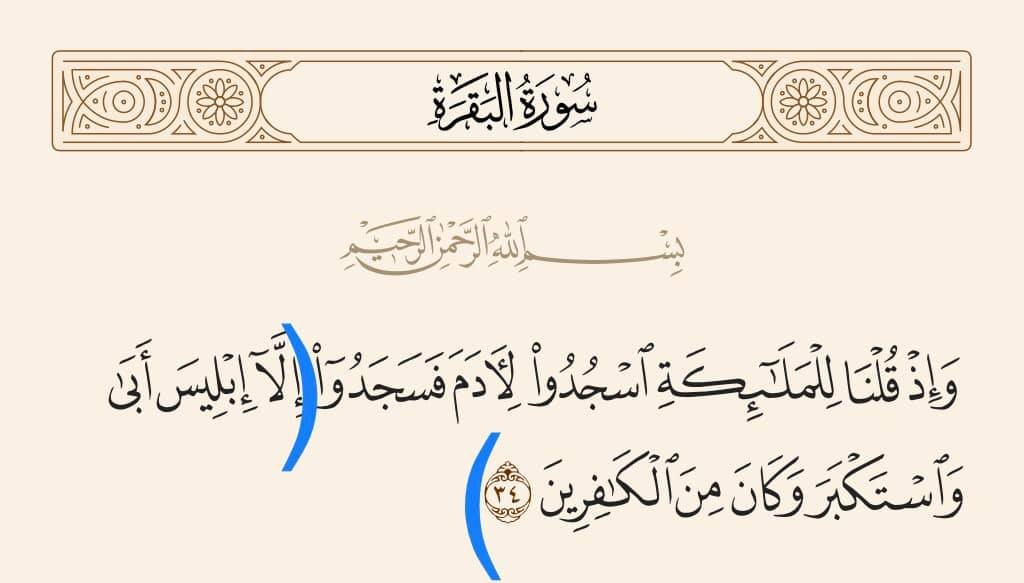 سُورَةُ البَقَرَةِ
بِسْمِ ٱللَّهِ ٱلرَّحْمَٰنِ ٱلرَّحِيمِ
وَإِذْ قُلْنَا لِلْمَلَٰٓئِكَةِ ٱسْجُدُوا۟ لِءَادَمَ فَسَجَدُوٓا۟ (إِلَّآ إِبْلِيسَ أَبَىٰ
وَٱسْتَكْبَرَ وَكَانَ مِنَ ٱلْكَٰفِرِينَ ٣٤)